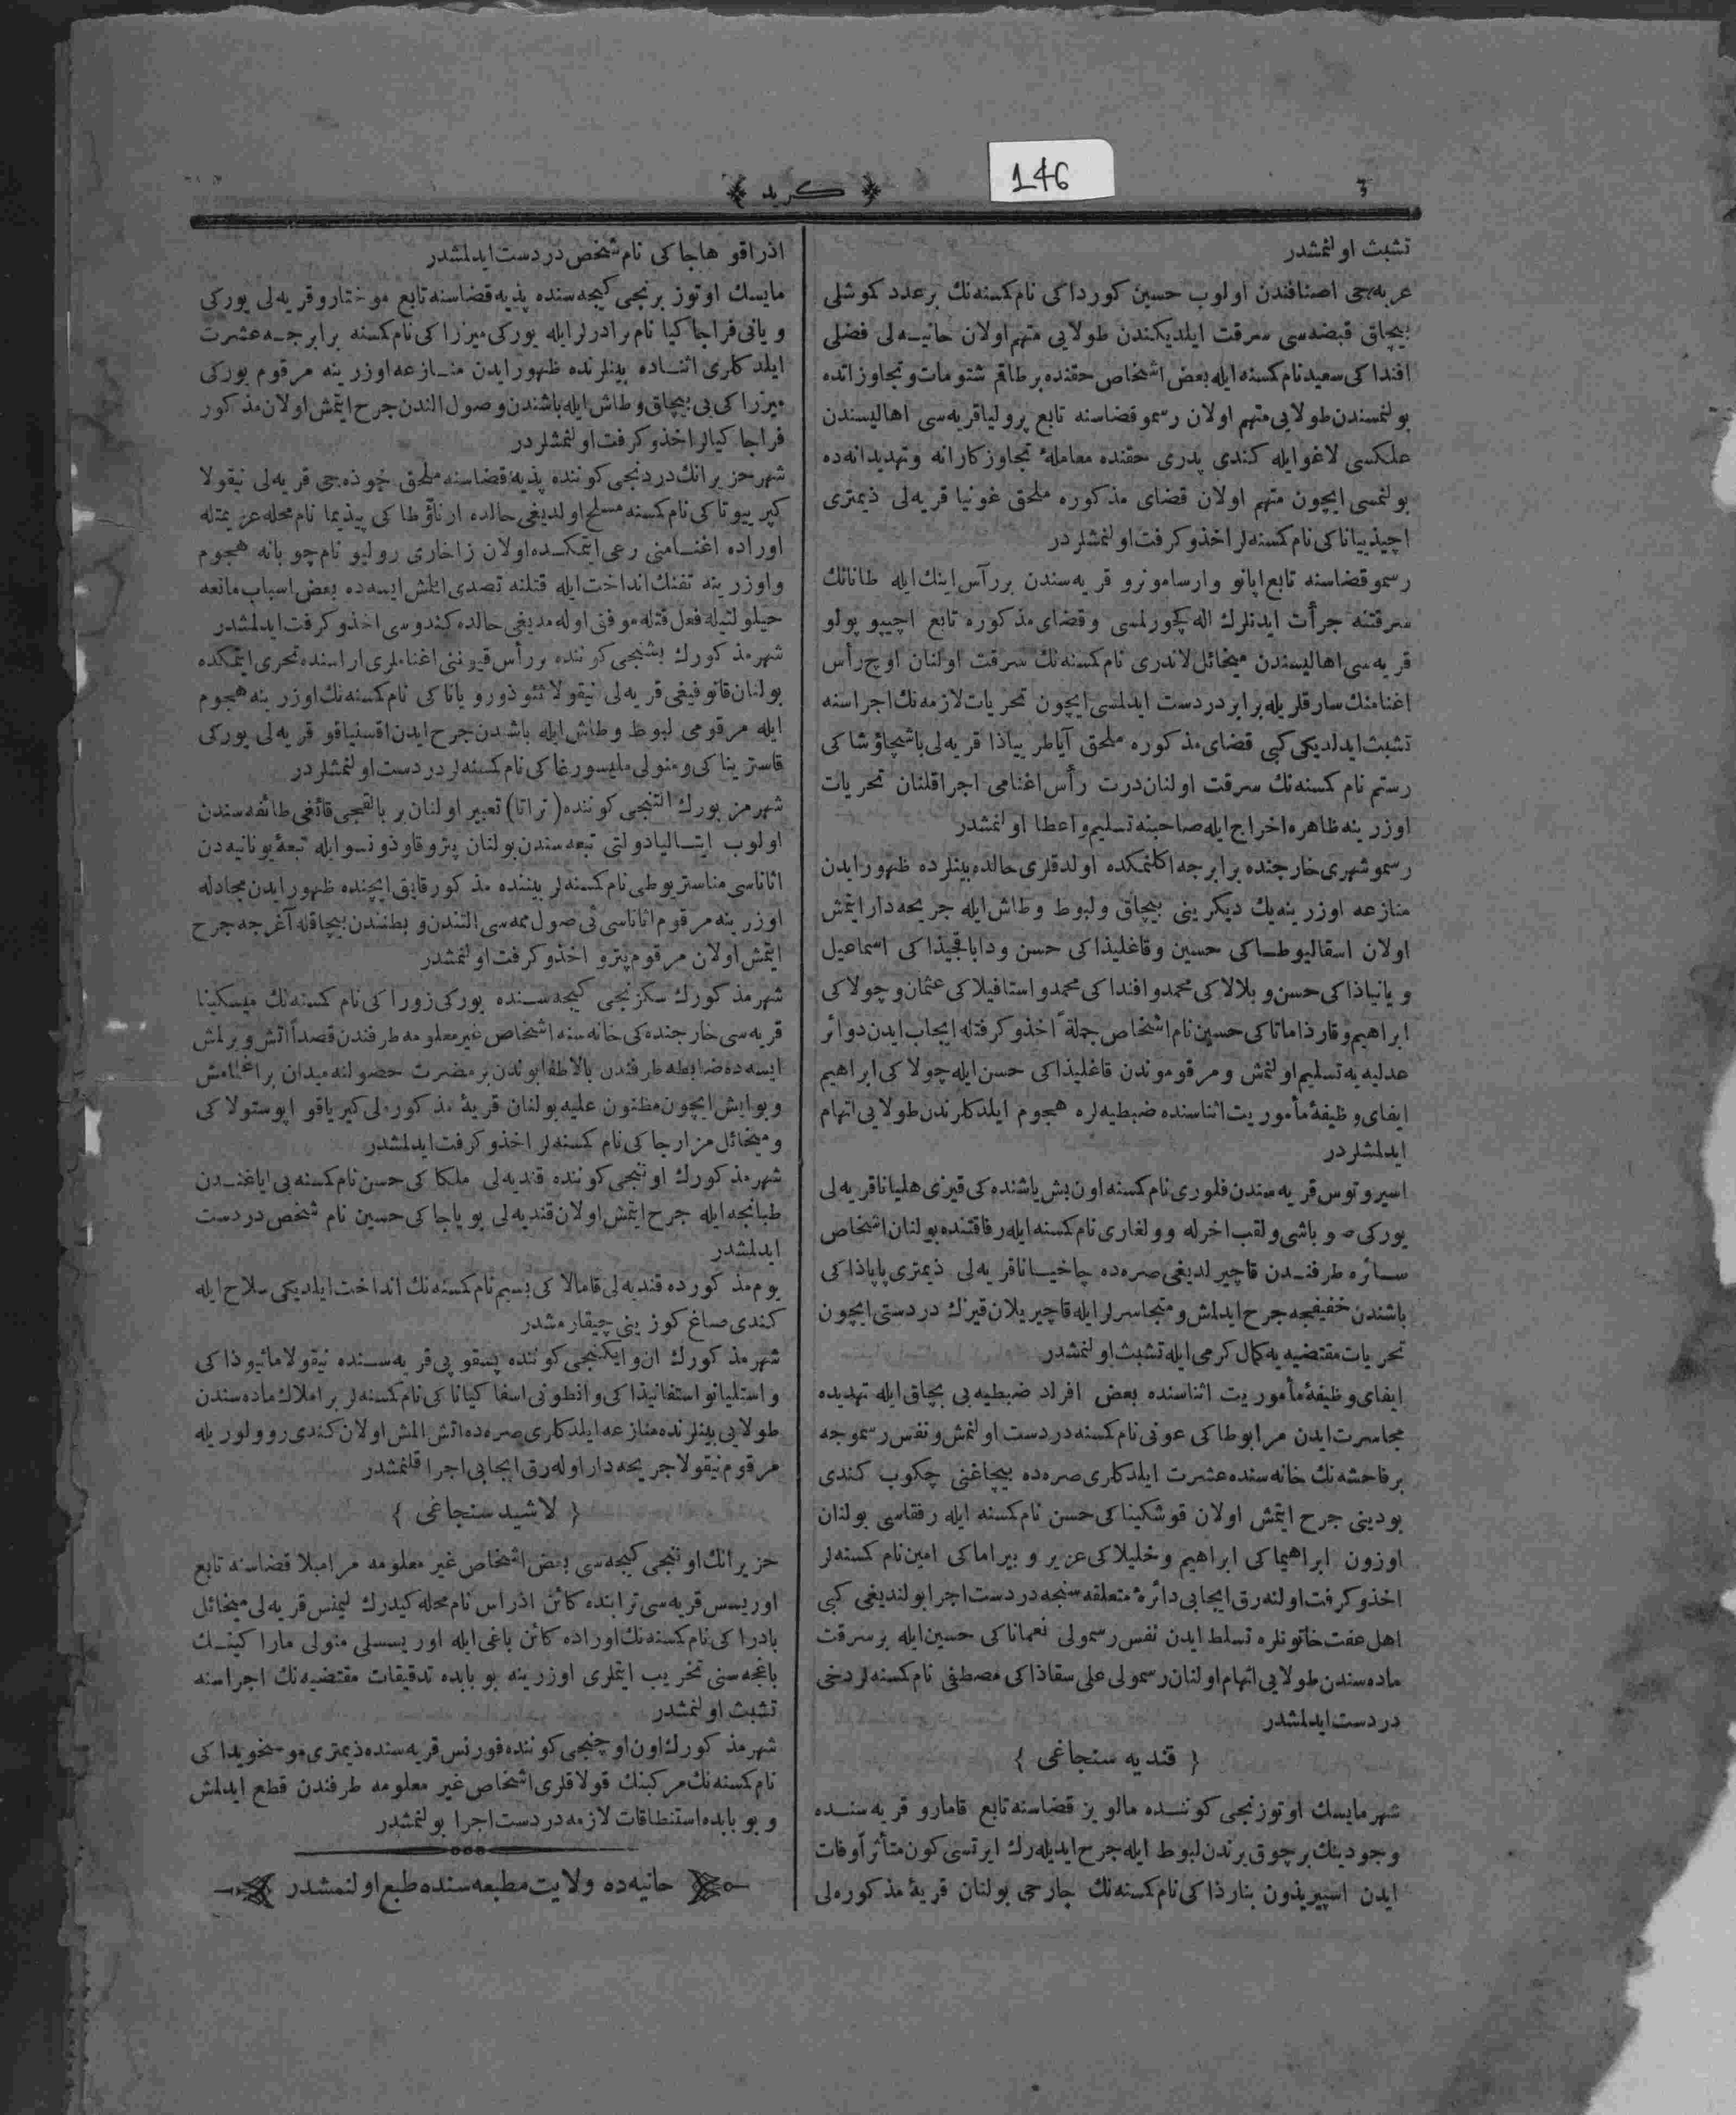 146
كريد
تشبث اولنمشدر
عربه‌جى اصنافندن اولوب حسين كورداكى نام كمسنه‌نك برعدد كموشلى
بيچاق قبضه‌سى سرقت ايلديكندن طولايى متهم اولان حانيه‌لى فضلى
افنداكى سعيد نام كمسنه ايله بعض اشخاص حقنده برطاقم شتومات و تجاوزاتده
بولنمسندن طولايى متهم اولان رسمو قضاسنه تابع پروليا قريه‌سى اهاليسندن
علكسى لاغو ايله كندى پدرى حقنده معاملهٔ تجاوزكارانه و تهديدانه‌ده
بولنمسى ايچون متهم اولان قضاى مذكوره ملحق غونيا قريه‌لى ذيمترى
اچيذبياناكى نام كمسنه‌لر اخذ و كرفت اولنمشلردر
رسمو قضاسنه تابع اپانو وارسامونرو قريه‌سندن بررأس اينك ايله طانانك
سرقتنه جرأت ايدنلرك اله كچورلمسى و قضاى مذكوره تابع اچيپوپولو
قريه‌سى اهاليسندن ميخائل لاندرى نام كمسنه‌نك سرقت اولنان اوچ رأس
اغنامنك سارقلريله برابر دردست ايدلمسى ايچون تحريات لازمه‌نك اجراسنه
تشبث ايدلديكى كبى قضاى مذكوره ملحق آياطريياذا قريه‌لى باشچاؤشاكى
رستم نام كمسنه‌نك سرقت اولنان درت رأس اغنامى اجرا قلنان تحريات
اوزرينه ظاهره اخراج ايله صاحبنه تسليم و اعطا اولنمشدر
رسمو شهرى خارجنده برابرجه اكلنمكده اولدقلرى حالده بينلرده ظهور ايدن
منازعه اوزرينه يك ديكرينى بيچاق و لبوط و طاش ايله جريحه‌دار ايتمش
اولان اسقاليوطاكى حسين و قاغليذاكى حسن و داباقجيذاكى اسماعيل
و يانياذاكى حسن و بلالاكى محمد و افنداكى محمد و استافيلاكى عثمان و چولاكى
ابراهيم و قارذاماتاكى حسين نام اشخاص جملةً اخذ و كرفتله ايجاب ايدن دوائر
عدليه‌يه تسليم اولنمش و مرقوموندن قاغليذاكى حسن ايله چولاكى ابراهيم
ايفاى وظيفهٔ مأموريت اثناسنده ضبطيه‌لره هجوم ايلدكلرندن طولايى اتهام
ايدلمشلردر
اسيروتوس قريه‌سندن فلورى نام كمسنه اون بش ياشنده‌كى قيزى هليانا قريه‌لى
يوركى صوباشى و لقب اخرله وولغارى نام كمسنه ايله رفاقتنده بولنان اشخاص
سائره طرفندن قاچيرلديغى صره‌ده چاخيانا قريه‌لى ذيمترى پاپاذاكى
باشندن خفيفجه جرح ايدلمش و متجاسرلر ايله قاچيريلان قيزك دردستى ايچون
تحريات مقتضيه‌يه كمال كرمى ايله تشبث اولنمشدر
ايفاى وظيفهٔ مأموريت اثناسنده بعض افراد ضبطيه‌يى بچاق ايله تهديده
مجاسرت ايدن مرابوطاكى عونى نام كمسنه دردست اولنمش و نفس رسموجه
برفاحشه‌نك خانه‌سنده عشرت ايلدكلرى صره‌ده بيچاغنى چكوب كندى
بودينى جرح ايتمش اولان قوشكيناكى حسن نام كمسنه ايله رفقاسى بولنان
اوزون ابراهيماكى ابراهيم و خليلاكى عزير و بيراماكى امين نام كمسنه‌لر
اخذ و كرفت اولنه‌رق ايجابى دائرهٔ متعلقه‌سنجه دردست اجرا بولنديغى كبى
اهل عفت خاتونلره تسلط ايدن نفس رسمولى نعماناكى حسين ايله برسرقت
ماده‌سندن طولايى اتهام اولنان رسمولى على سقاذاكى مصطفى نام كمسنه‌لر دخى
دردست ايدلمشدر
﴿ قنديه سنجاغى ﴾
شهر مايسك اوتوزنجى كوننده مالويز قضاسنه تابع قامارو قريه‌سنده
وجودينك برچوق يرندن لبوط ايله جرح ايديله‌رك ايرتسى كون متأثراً وفات
ايدن اسپيريذون بنارذاكى نام كمسنه‌نك جارحى بولنان قريهٔ مذكوره‌لى
اذراقو هاجاكى نام شخص دردست ايدلمشدر
مايسك اوتوز برنجى كيجه‌سنده پذيه قضاسنه تابع موختارو قريه‌لى يوركى
و يانى فراجاكيا نام برادرلر ايله يوركى ميزراكى نام كمسنه برابرجه عشرت
ايلدكلرى اثناده بينلرنده ظهور ايدن منازعه اوزرينه مرقوم يوركى
ميزراكى‌يى بيچاق و طاش ايله باشندن و صول الندن جرح ايتمش اولان مذكور
فراجاكيالر اخذ و كرفت اولنمشلردر
شهر حزيرانك دردنجى كوننده پذيه قضاسنه ملحق خوذه‌جى قريه‌لى نيقولا
كپربيوتاكى نام كمسنه مسلح اولديغى حالده ارناؤطاكى پيذيما نام محله عزيمتله
اوراده اغنامنى رعى ايتمكده اولان زاخارى روليو نام چوبانه هجوم
و اوزرينه تفنك انداخت ايله قتلنه تصدى ايتمش ايسه‌ده بعض اسباب مانعه
حيلولتيله فعل قتله موفق اوله‌مديغى حالده كندوسى اخذ و كرفت ايدلمشدر
شهر مذكورك بشنجى كوننده بررأس قيوننى اغناملرى اراسنده تحرى ايتمكده
بولنان قانوفيغى قريه‌لى نيقولا ثئوذورو ياناكى نام كمسنه‌نك اوزرينه هجوم
ايله مرقومى لبوط و طاش ايله باشندن جرح ايدن اقسنياقو قريه‌لى يوركى
قاستريناكى و منولى مليسورغاكى نام كمسنه‌لر دردست اولنمشلردر
شهر مزبورك التنجى كوننده (تراتا) تعبير اولنان بر بالقجى قائغى طائفه‌سندن
اولوب ايتاليا دولتى تبعه‌سندن بولنان پترو قاوذونسو ايله تبعهٔ يونانيه‌دن
اثاناسى مناستريوطى نام كمسنه‌لر بيننده مذكور قايق ايچنده ظهور ايدن مجادله
اوزرينه مرقوم اثاناسى‌ئى صول ممه‌سى التندن و بطنندن بيچاقله آغرجه جرح
ايتمش اولان مرقوم پترو اخذ و كرفت اولنمشدر
شهر مذكورك سكزنجى كيجه‌سنده يوركى زوراكى نام كمسنه‌نك ميسكينا
قريه‌سى خارجنده‌كى خانه‌سنه اشخاص غير معلومه طرفندن قصداً اتش ويرلمش
ايسه‌ده ضابطه طرفندن بالاطفا بوندن برمضرت حصولنه ميدان براغلمامش
و بو ايش ايچون مظنون عليه بولنان قريهٔ مذكوره‌لى كيرياقو اپوستولاكى
و ميخائل مزارجاكى نام كمسنه‌لر اخذ و كرفت ايدلمشدر
شهر مذكورك اوننجى كوننده قنديه‌لى ملكاكى حسن نام كمسنه‌يى اياغندن
طبانجه ايله جرح ايتمش اولان قنديه‌لى بوياجاكى حسين نام شخص دردست
ايدلمشدر
يوم مذكورده قنديه‌لى قامالاكى بسيم نام كمسنه‌نك انداخت ايلديكى سلاح ايله
كندى صاغ كوزينى چيقارمشدر
شهر مذكورك اون ايكنجى كوننده پسقوپى قريه‌سنده نيقولا ماتيوذاكى
و استليانو استفانيذاكى و انطونى اسفاكياناكى نام كمسنه‌لر براملاك ماده‌سندن
طولايى بينلرنده منازعه ايلدكلرى صره‌ده اتش المش اولان كندى روولوريله
مرقوم نيقولا جريحه‌دار اوله‌رق ايجابى اجرا قلنمشدر
﴿ لاشيد سنجاغى ﴾
حزيرانك اوننجى كيجه‌سى بعض اشخاص غير معلومه مرامبلا قضاسنه تابع
اوريسس قريه‌سى ترابنده كائن اذراس نام محله كيدرك ليمنس قريه‌لى ميخائل
بادراكى نام كمسنه‌نك اوراده كائن باغى ايله اوريسسلى منولى ماراكينك
باغچه‌سنى تخريب ايتملرى اوزرينه بو بابده تدقيقات مقتضيه‌نك اجراسنه
تشبث اولنمشدر
شهر مذكورك اون اوچنجى كوننده فورنس قريه‌سنده ذيمترى موسخويداكى
نام كمسنه‌نك مركبنك قولاقلرى اشخاص غير معلومه طرفندن قطع ايدلمش
و بو بابده استنطاقات لازمه دردست اجرا بولنمشدر
حانيه‌ده ولايت مطبعه‌سنده طبع اولنمشدر